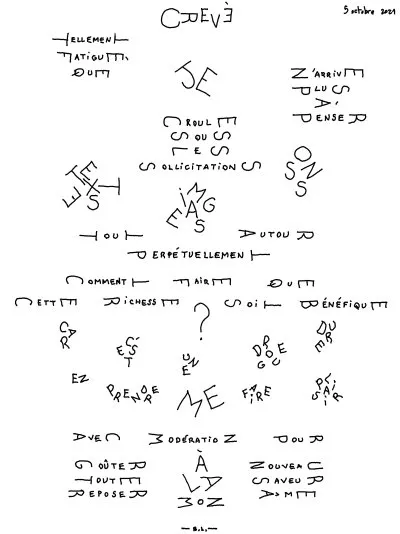 CREVÈ
5 octobre 2021
TELLEMENT
FATIGUÉ,
QUE
JE
N'ARRIVE
PLUS
À
PENSER
CROULE
SOUS
LES
SOLLICITATIONS
TEXTES
IMAGES
SONS
TOUT AUTOUR
PERPÉTUELLEMENT
COMMENT FAIRE QUE
CETTE RICHESSE SOIT BÉNÉFIQUE
?
CAR C'EST UNE DROGUE DURE
EN PRENDRE ME FAIRE PLAISIR
AVEC MODÉRATION POUR
GOÛTER À NOUVEAU
TOUTE LA SAVEUR
REPOSER MON ÂME
- B.L. -